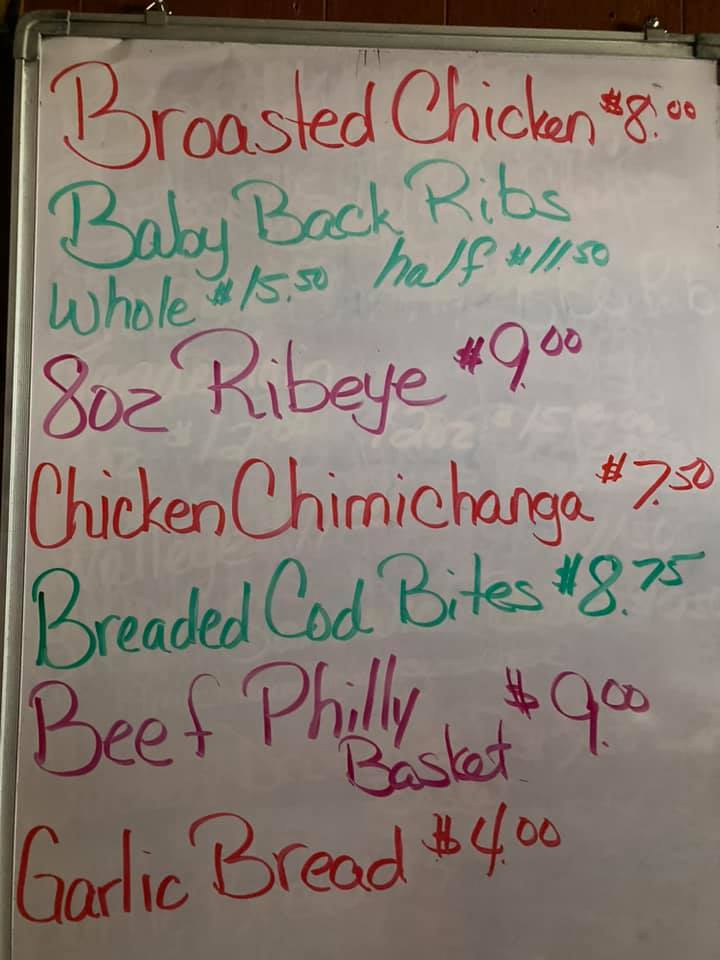 Broasted Chicken $8.00
Baby Back Ribs
Whole $15.50 half $11.50
8oz Ribeye $9.00
Chicken Chimichanga $7.50
Breaded Cod Bites $8.75
Beef Philly $9.00
Basket
Garlic Bread $4.00